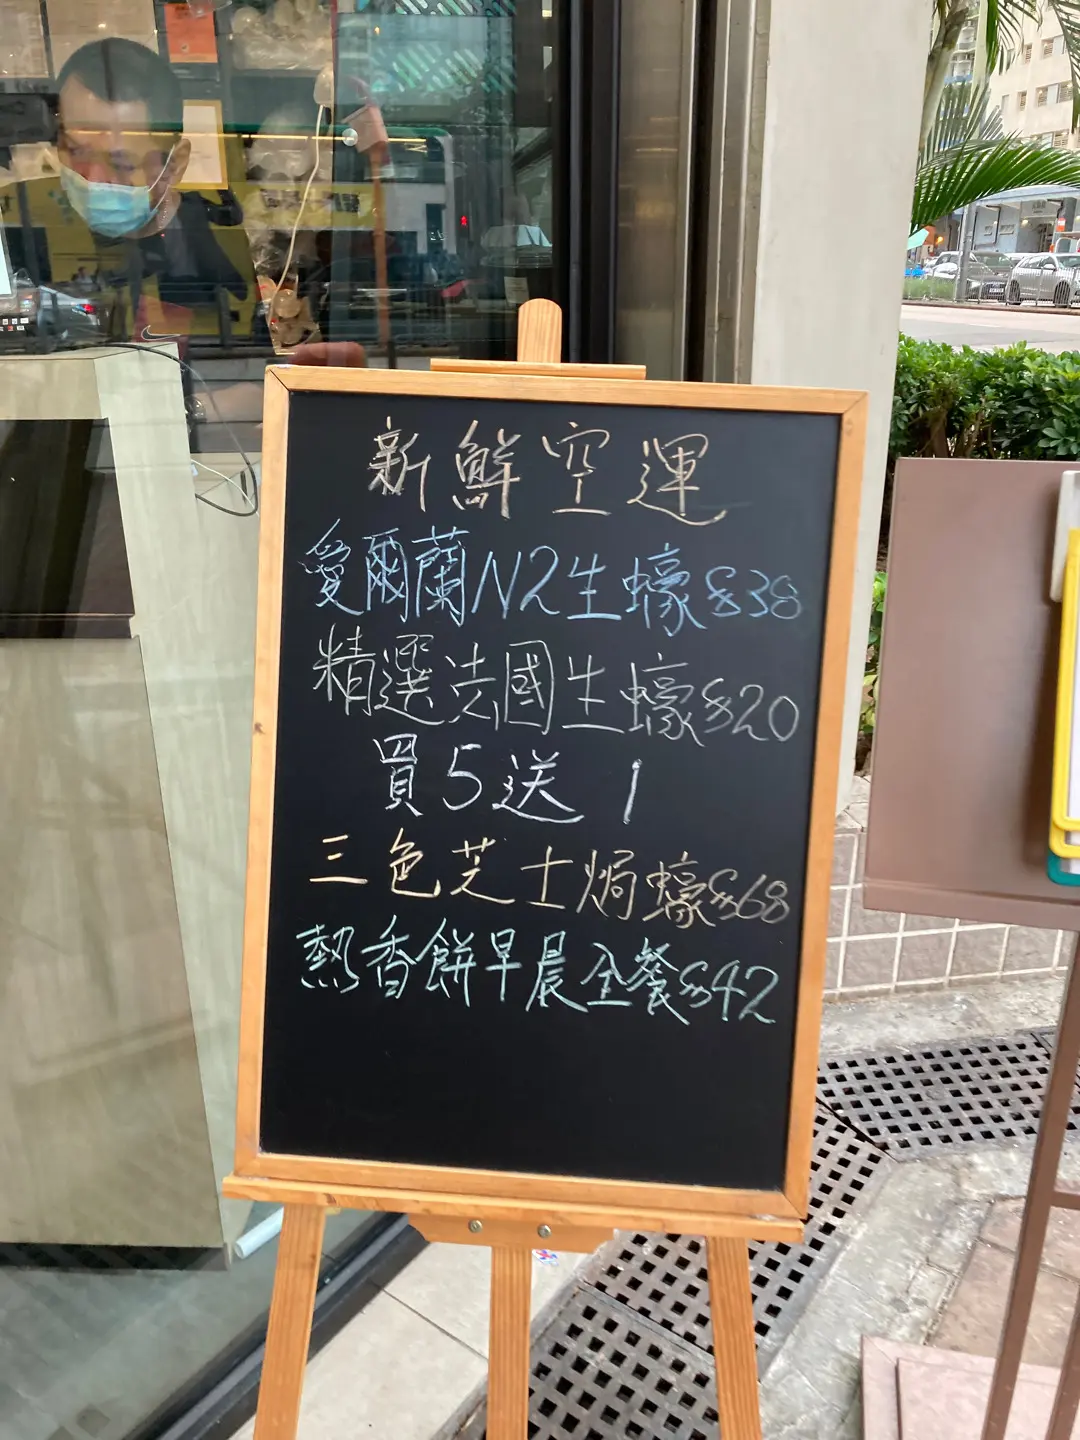 新鮮空運
愛爾蘭N2生蠔$38
精選法國生蠔$20
買5送1
三色芝士焗蠔$68
熱香餅早晨全餐$42